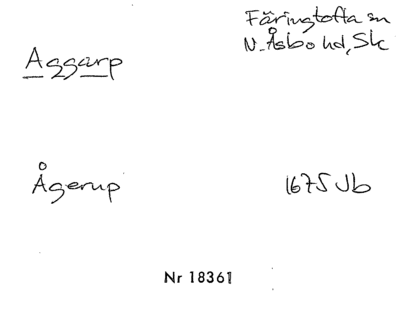 Färingtofta sn
N. Åsbo hd, Sk
Aggarp
Ågerup
1675 Jb
Nr 18361